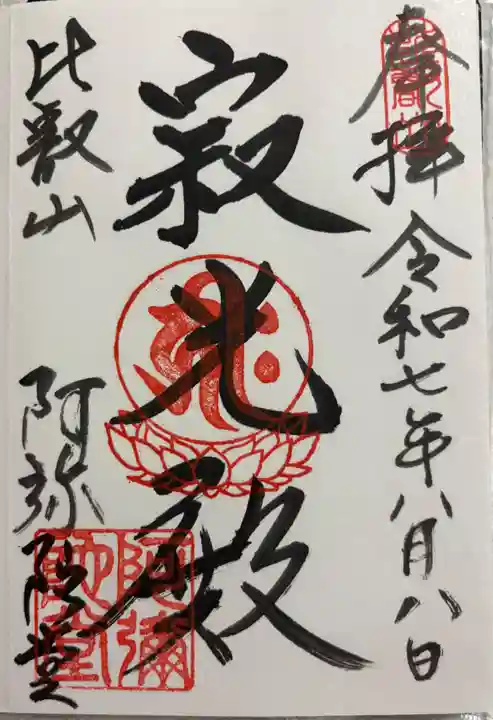 奉拝 令和七年八月八日
寂光殿
比叡山 阿弥陀堂
阿彌陀堂